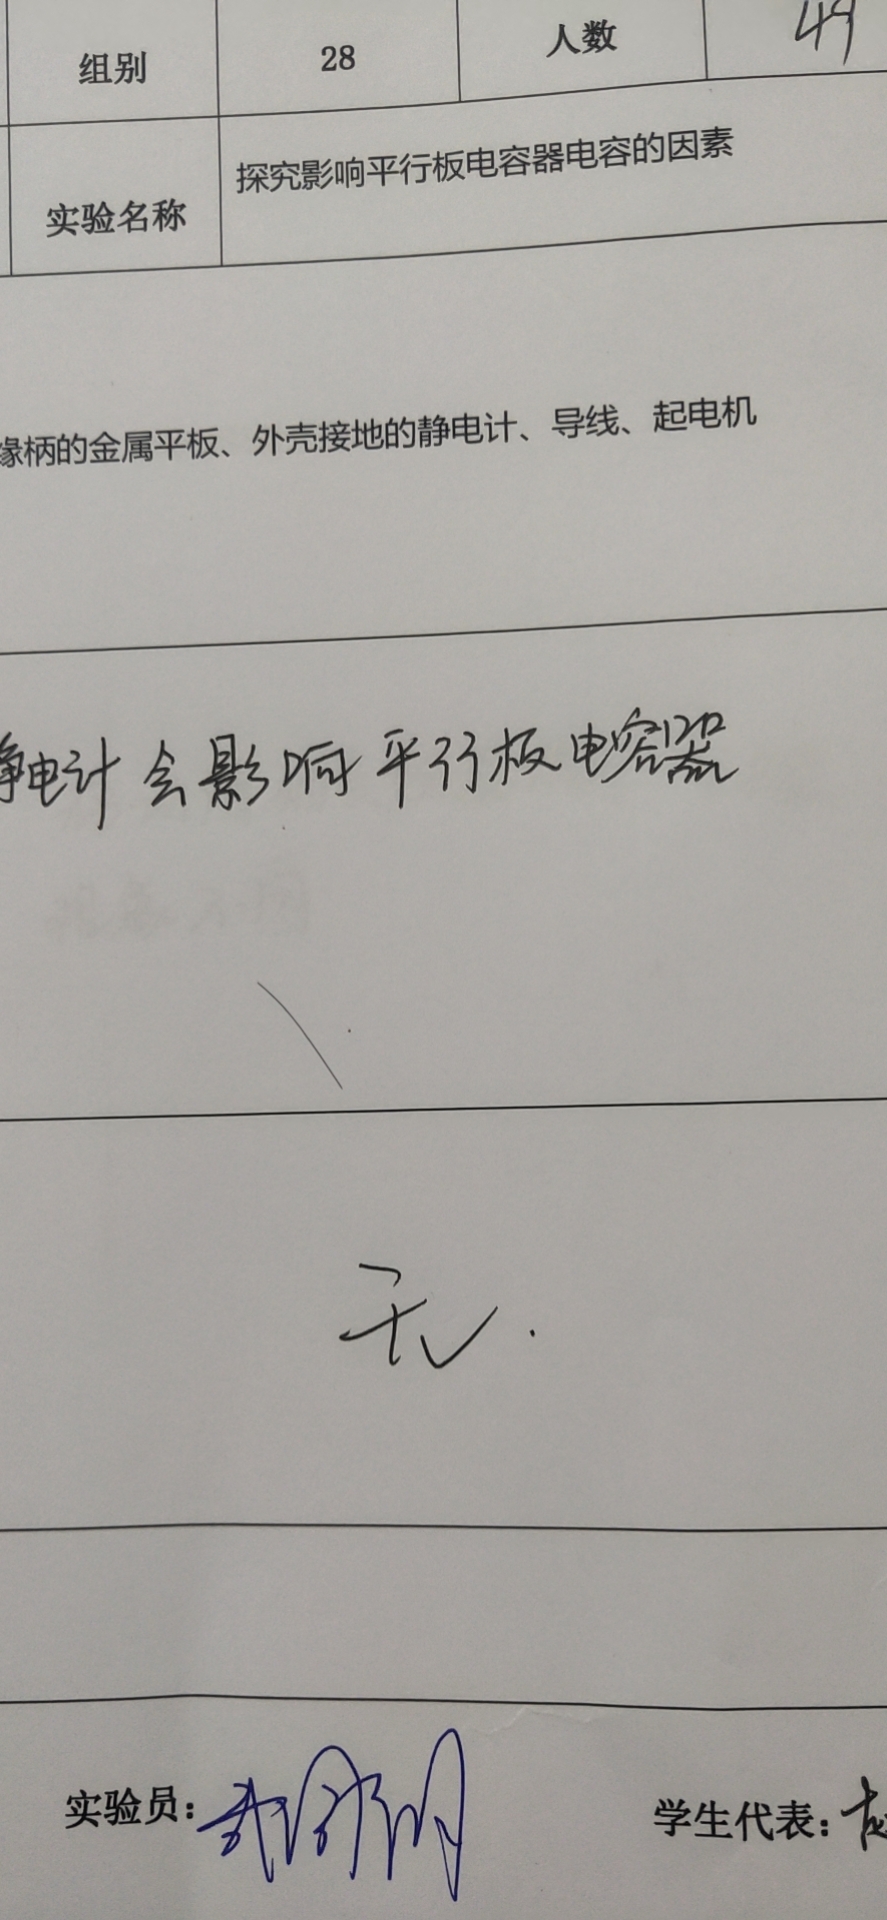 组别 28 人数 49
实验名称 探究影响平行板电容器电容的因素
缘柄的金属平板、外壳接地的静电计、导线、起电机
静电计会影响平行板电容器
无.
实验员: 学生代表: